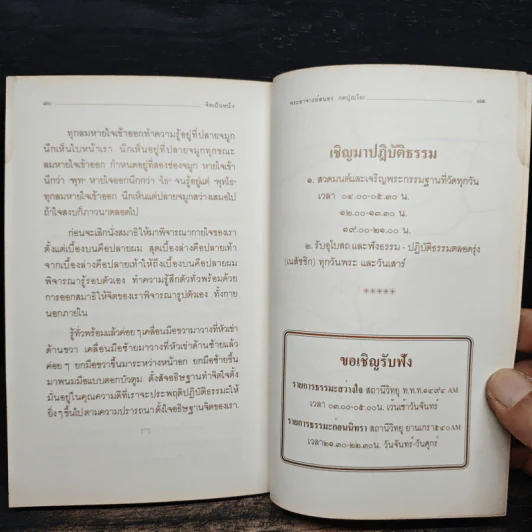 ๘๐ จิตเป็นหนึ่ง
ทุกลมหายใจเข้าออกทำความรู้อยู่ที่ปลายจมูก
นึกเห็นใบหน้าเรา นึกเห็นอยู่ที่ปลายจมูกทุกขณะ
ลมหายใจเข้าออก กำหนดอยู่ที่สองช่องจมูก หายใจเข้า
นึกว่า “พุท” หายใจออกนึกกว่า “โธ” จนรู้อยู่แต่ “พุทโธ”
ทุกลมหายใจเข้าออก นึกเห็นแต่ปลายจมูกว่างเสมอไป
ถ้าใจสงบก็ภาวนาตลอดไป
ก่อนจะเลิกนั่งสมาธิให้มาพิจารณากายใจของเรา
ตั้งแต่เบื้องบนคือปลายผม สุดเบื้องล่างคือปลายเท้า
จากเบื้องล่างคือปลายเท้าให้ถึงเบื้องบนคือปลายผม
พิจารณารู้รอบตัวเอง ทำความรู้สึกตัวทั่วพร้อมด้วย
การออกสมาธิให้จิตของเราพิจารณารูปตัวเอง ทั้งกาย
นอกภายใน
รู้ทั่วพร้อมแล้วค่อยๆ เคลื่อนมือขวามาวางที่หัวเข่า
ด้านขวา เคลื่อนมือซ้ายมาวางที่หัวเข่าด้านซ้ายแล้ว
ค่อยๆ ยกมือขวาขึ้นมาระหว่างหน้าอก ยกมือซ้ายขึ้น
มาพนมมือแบบดอกบัวตูม ตั้งสัจอธิษฐานทำจิตใจตั้ง
มั่นอยู่ในคุณความดีที่เราจะประพฤติปฏิบัติธรรมะให้
ยิ่งๆ ขึ้นไปตามความปรารถนาตั้งใจอธิษฐานจิตของเรา.
พระอาจารย์สนอง กตปุญฺโญ ๘๑
เชิญมาปฏิบัติธรรม
๑. สวดมนต์และเจริญพระกรรมฐานที่วัดทุกวัน
เวลา ๐๔.๐๐-๐๕.๓๐ น.
๑๒.๐๐-๑๓.๓๐ น.
๑๙.๐๐-๒๑.๐๐ น.
๒. รับอุโบสถ และฟังธรรม - ปฏิบัติธรรมตลอดรุ่ง
(เนสัชชิก) ทุกวันพระ และวันเสาร์
*****
ขอเชิญรับฟัง
รายการธรรมะสว่างใจ สถานีวิทยุ ท.ท.ท.๑๔๙๔ AM
เวลา ๐๓.๐๐-๐๕.๐๐น. เว้นเช้าวันจันทร์
รายการธรรมะก่อนนิทรา สถานีวิทยุ ยานเกราะ๕๔๐AM
เวลา๒๑.๓๐-๒๒.๓๐น. วันจันทร์-วันศุกร์